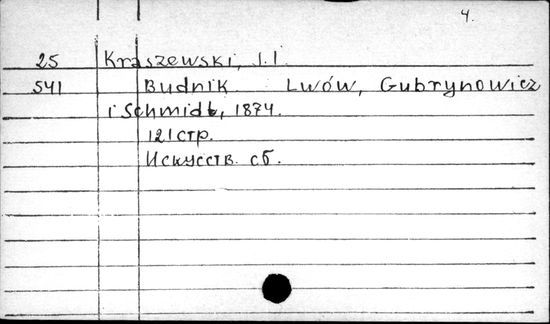 4.
25 Kraszewski, J.I.
541 Budnik Lwów, Gubrynowicz
i Schmidt, 1874.
121 стр.
Искусств. сб.